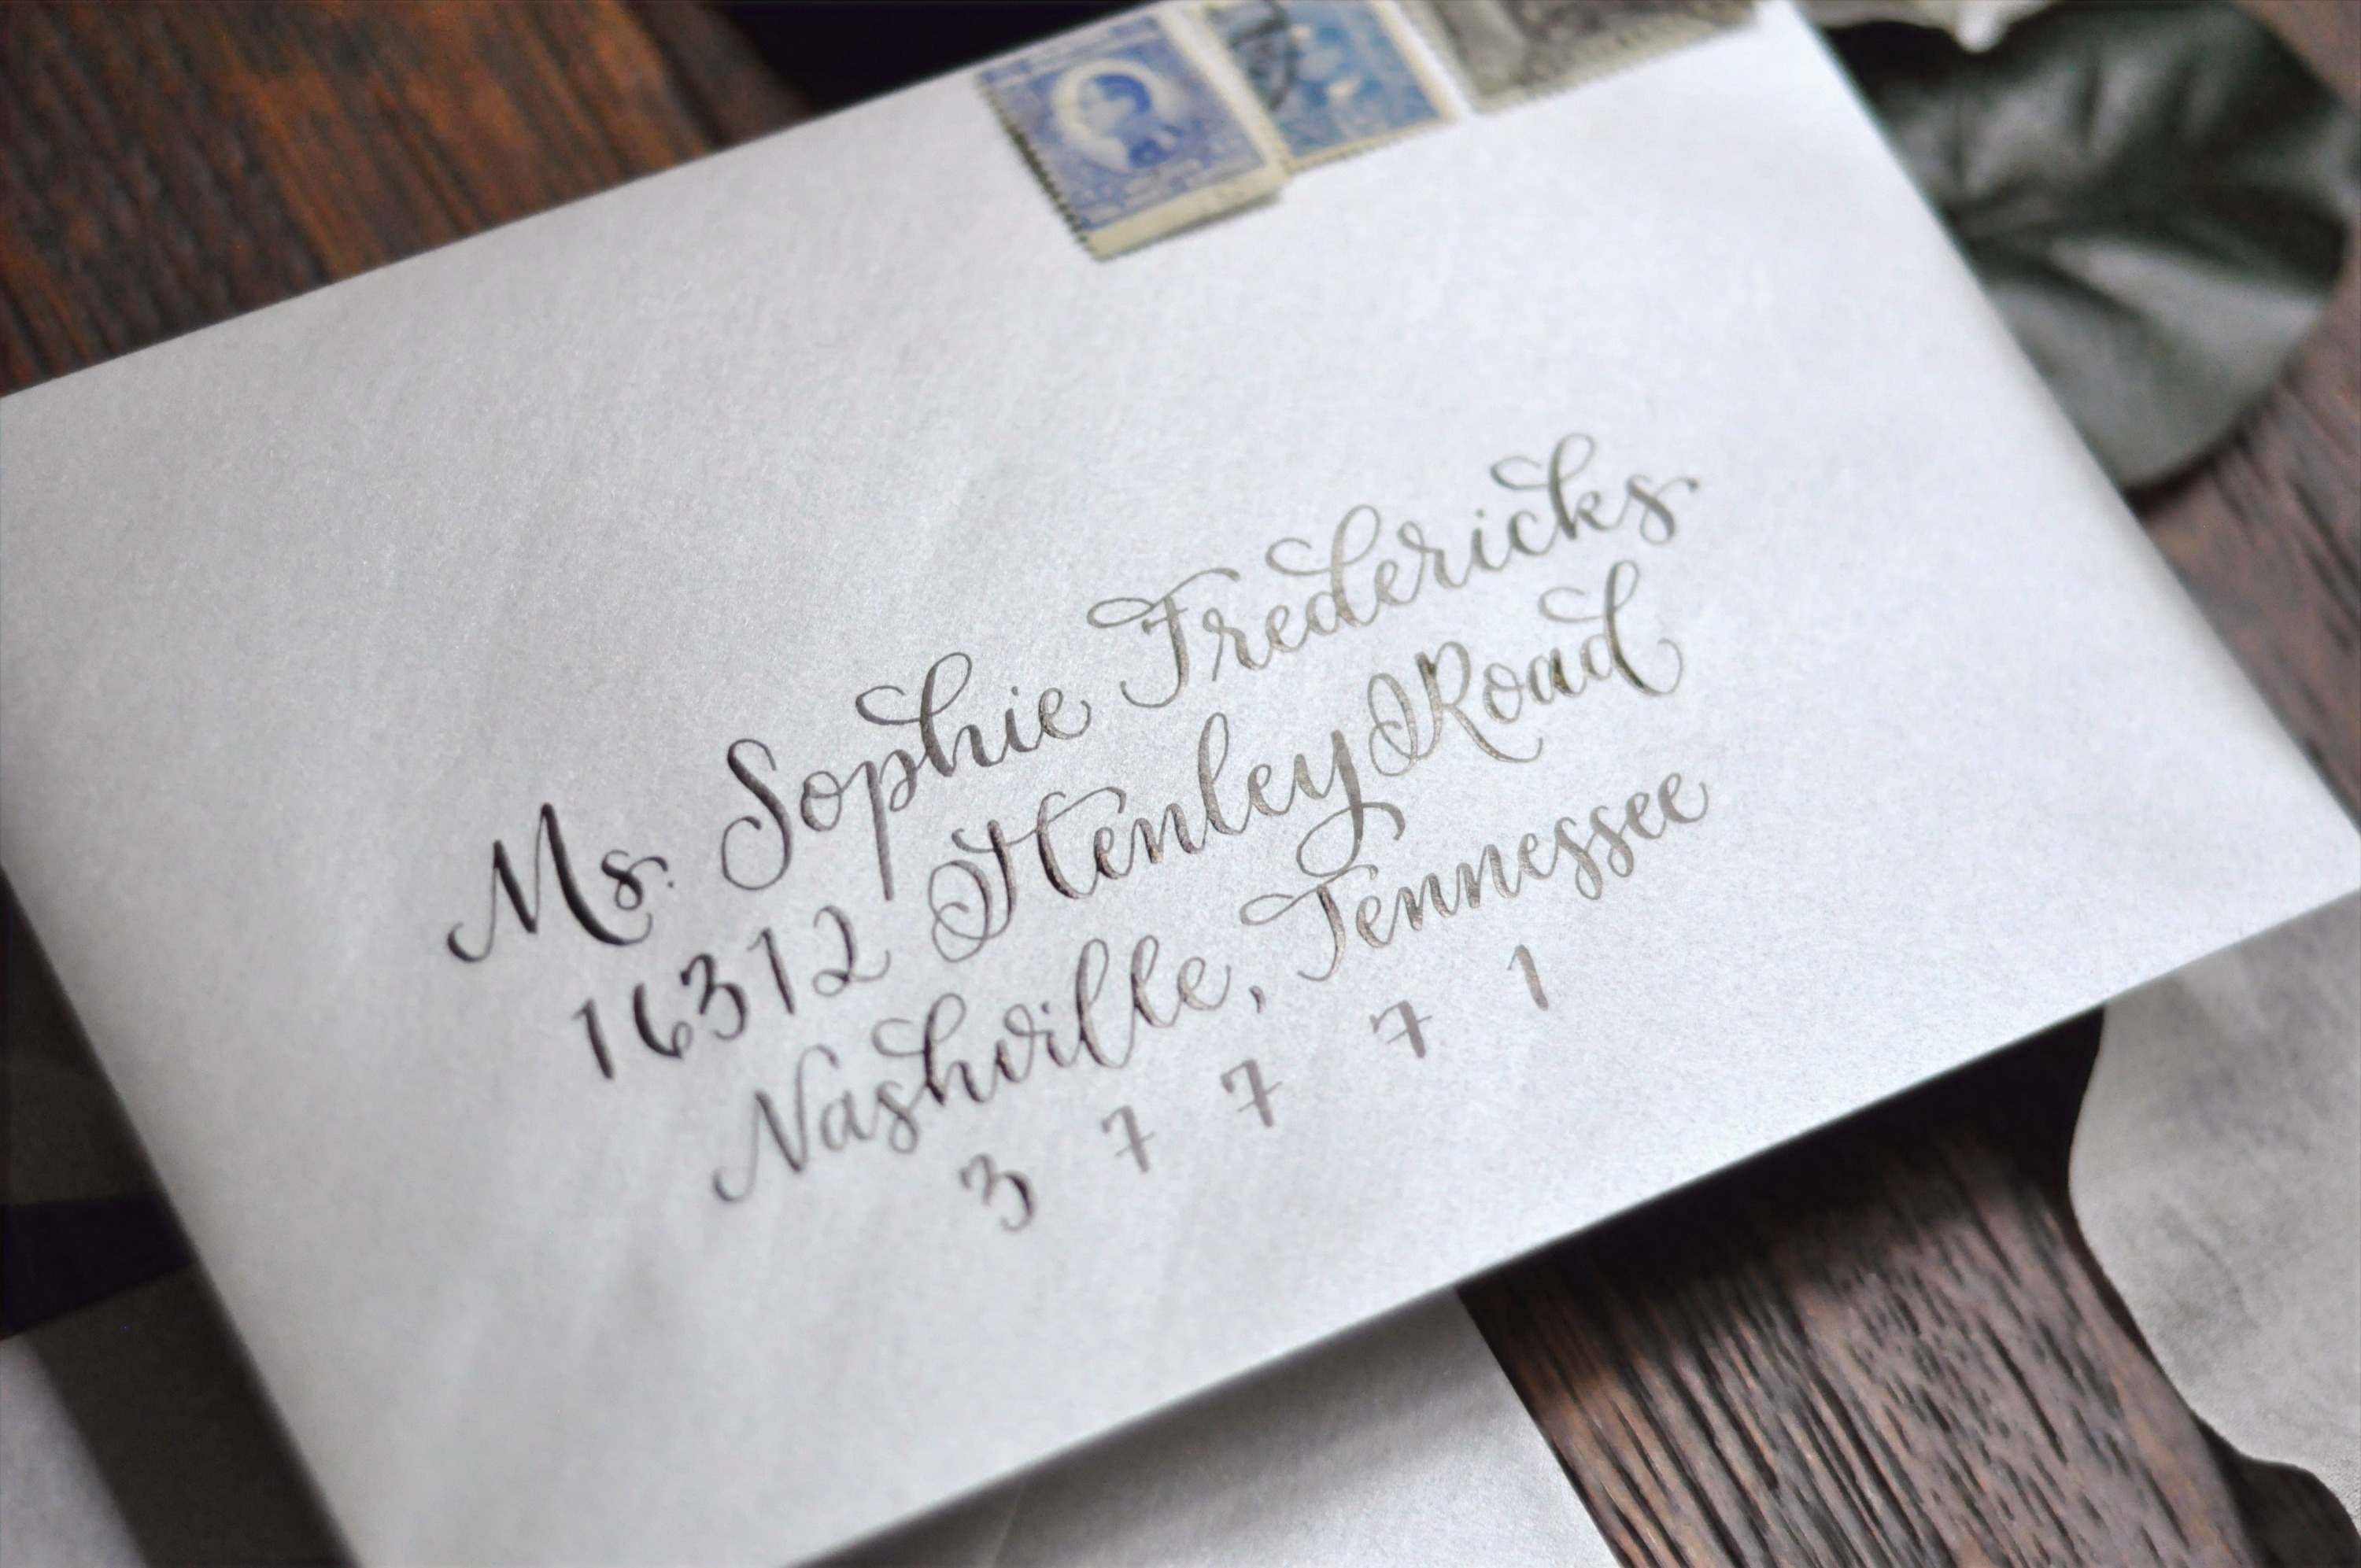 Ms. Sophie Fredericks
16312 Henley Road
Nashville, Tennessee
37771